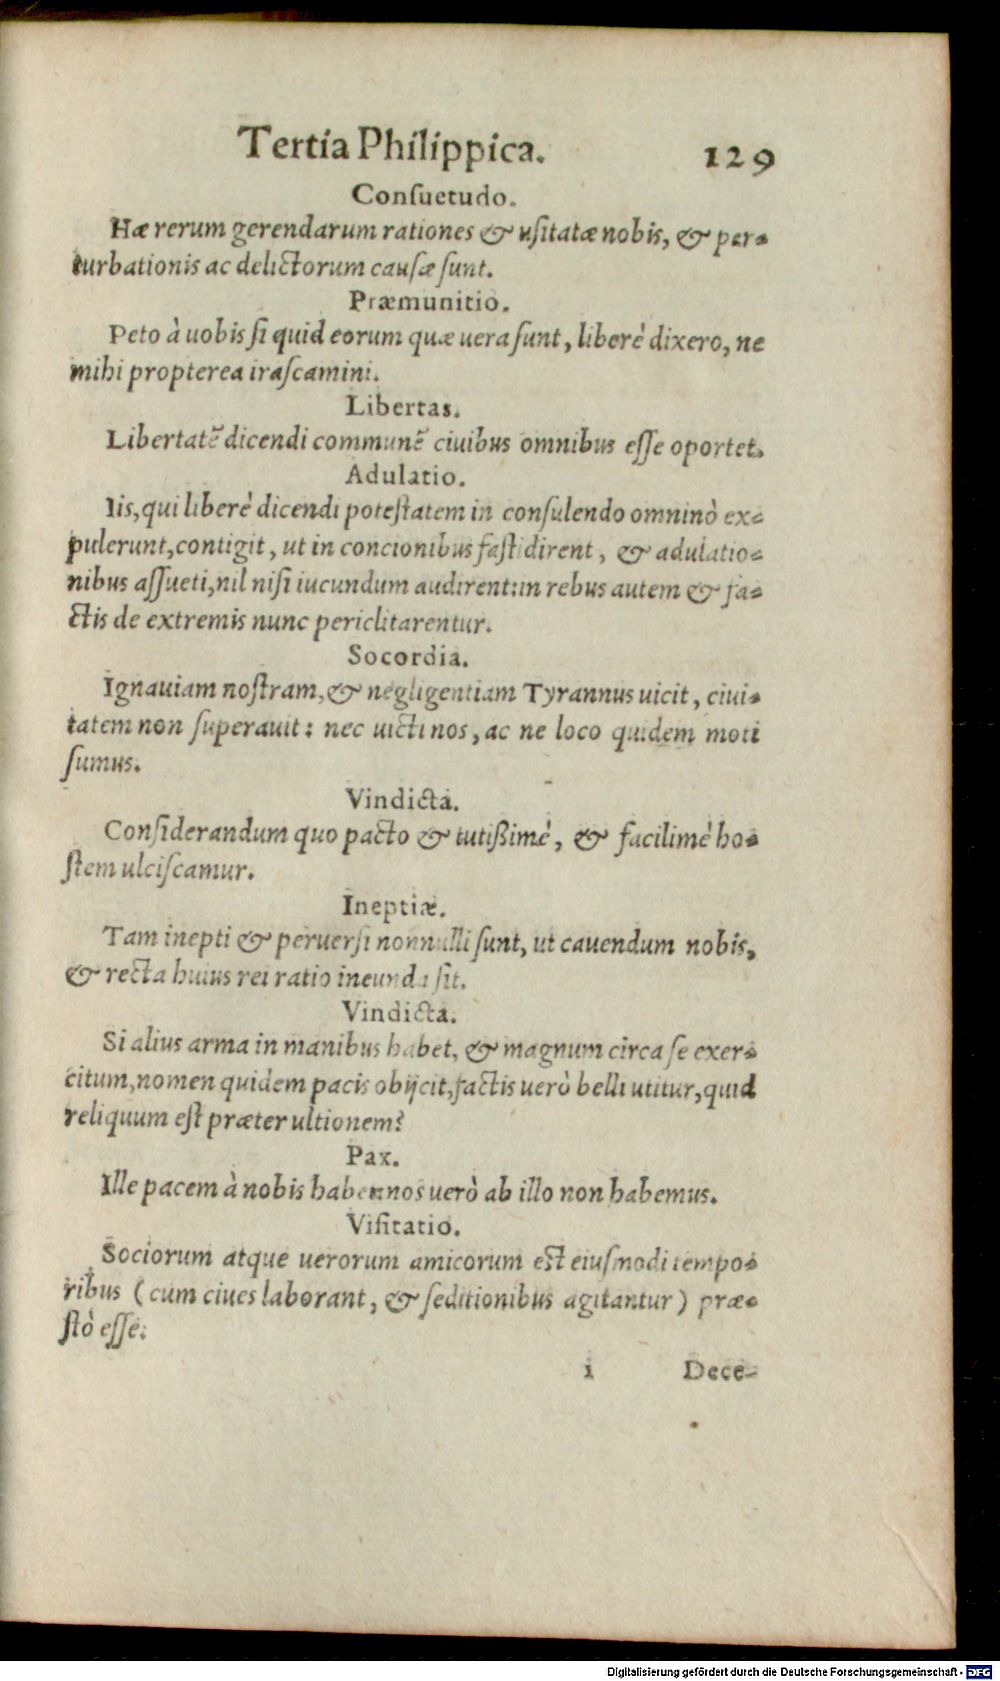 Tertia Philippica. 129
Conſuetudo.
Hæ rerum gerendarum rationes & uſitatæ nobis, & per-
turbationis ac delictorum cauſæ ſunt.
Præmunitio.
Peto à uobis ſi quid eorum quæ uera ſunt, liberè dixero, ne
mihi propterea iraſcamini.
Libertas.
Libertatẽ dicendi communẽ ciuibus omnibus eſſe oportet.
Adulatio.
Iis, qui liberè dicendi poteſtatem in conſulendo omninò ex-
pulerunt, contigit, ut in concionibus faſtidirent, & adulatio-
nibus aſſueti, nil niſi iucundum audirent: in rebus autem & fa-
ctis de extremis nunc periclitarentur.
Socordia.
Ignauiam noſtram, & negligentiam Tyrannus uicit, ciui-
tatem non ſuperauit: nec uicti nos, ac ne loco quidem moti
ſumus.
Vindicta.
Conſiderandum quo pacto & tutißimè, & facilimè ho-
ſtem ulciſcamur.
Ineptiæ.
Tam inepti & peruerſi nonnulli ſunt, ut cauendum nobis,
& recta huius rei ratio ineunda ſit.
Vindicta.
Si alius arma in manibus habet, & magnum circa ſe exer-
citum, nomen quidem pacis obijcit, factis uerò belli utitur, quid
reliquum eſt præter ultionem?
Pax.
Ille pacem à nobis habet nos uerò ab illo non habemus.
Viſitatio.
Sociorum atque uerorum amicorum eſt eiuſmodi tempo-
ribus (cum ciues laborant, & ſeditionibus agitantur) præ-
ſtò eſſe.
i Dece-
Digitalisierung gefördert durch die Deutsche Forschungsgemeinschaft - DFG